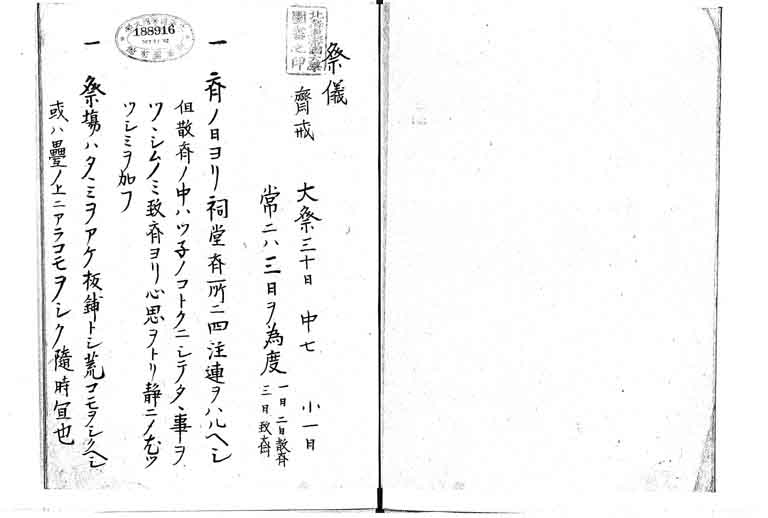 祭儀
齊戒 大祭三十日 中七 小一日
常ニハ三日ヲ為度 一日二日散斉 三日致斉
一 斉ノ日ヨリ祠堂斉所ニ四注連ヲハルヘシ
但散斉ノ中ハツ子ノコトクニシテタヽ事ヲ
ツヽシムノミ致斉ヨリ心思ヲトリ静ニノ
ツシミヲ加フ
一 祭場ハタヽミヲアケ板鋪トシ荒コモヲシクヘシ
或ハ疊ノ上ニアラコモヲシク隨時宜也
188916
圖書之印